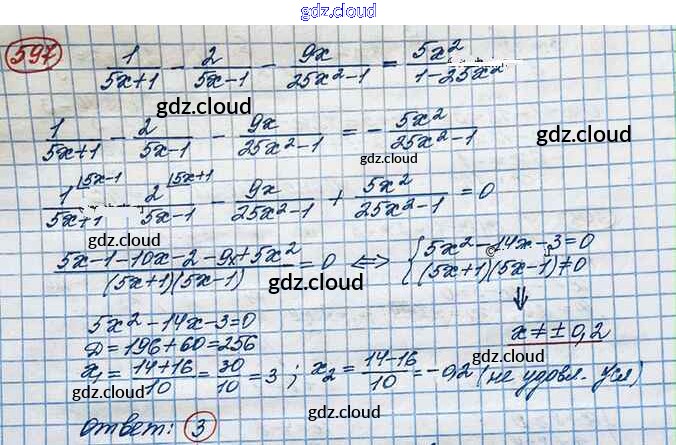 gdz.cloud
gdz.cloud
597 1/(5x+1) - 2/(5x-1) - 9x/(25x²-1) = 5x²/(1-25x²)
gdz.cloud
gdz.cloud
1/(5x+1) - 2/(5x-1) - 9x/(25x²-1) = - 5x²/(25x²-1)
gdz.cloud
gdz.cloud
1^{5x-1}/(5x+1) - 2^{5x+1}/(5x-1) - 9x/(25x²-1) + 5x²/(25x²-1) = 0
gdz.cloud
gdz.cloud
(5x-1-10x-2-9x+5x²)/((5x+1)(5x-1)) = 0 ⟺ { 5x²-14x-3=0
(5x+1)(5x-1)≠0
gdz.cloud
gdz.cloud
⇓
5x²-14x-3=0
x≠±0,2
Д=196+60=256
gdz.cloud
gdz.cloud
x₁ = (14+16)/10 = 30/10 = 3 ; x₂ = (14-16)/10 = -0,2 (не удовл. усл)
gdz.cloud
gdz.cloud
Ответ: 3